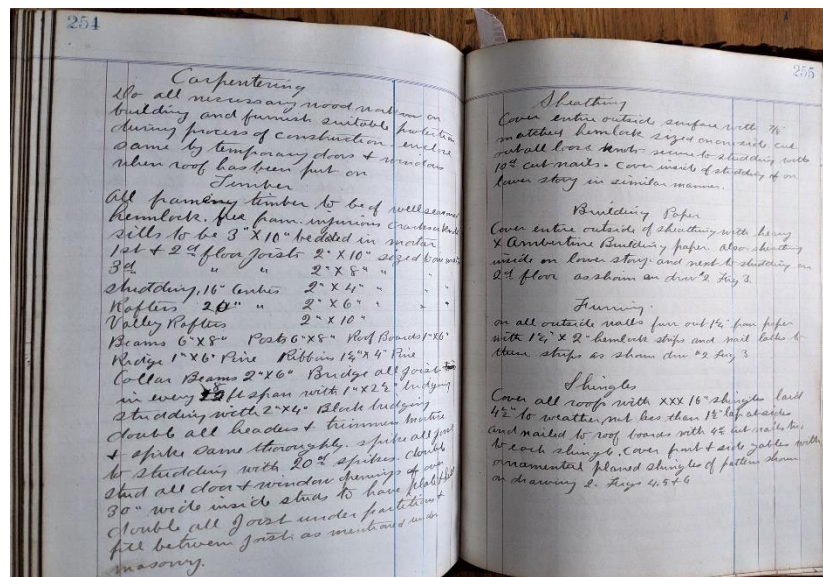 254
Carpentering
Do all necessary wood work on
building and furnish suitable protection
during process of construction enclose
same by temporary doors + windows
when roof has been put on
Timber
All framing timber to be of well seasoned
hemlock. free from injurious cracks or knots
sills to be 3" X 10" bedded in mortar
1st + 2d floor joists 2" X 10" sized
3d " " 2" X 8" "
studding, 16" centres 2" X 4" "
Rafters 20" " 2" X 6" "
Valley Rafters 2" X 10"
Beams 6" X 8" Posts 6" X 8" Roof Boards 1" X 6"
Ridge 1" X 6" Pine Ribbins 1¼" X 4" Pine
Collar Beams 2" X 6" Bridge all joist
in every 8 ft span with 1" X 2½" bridging
studding with 2" X 4" Block bridging
double all headers + trimmers
+ spike same thoroughly. spike all joist
to studding with 20d spikes. double
stud all door + window openings of over
30" wide inside studs to have
double all Joist under partitions +
fill between Joists as mentioned under
masonry.
255
Sheathing
Cover entire outside surface with ⅞
matched hemlock sized on one side cut
out all loose knots secure to studding with
10d cut nails. Cover inside of studding of on
lower story in similar manner.
Building Paper
Cover entire outside of sheathing with heavy
X Building paper also sheathing
inside on lower story. and next to studding on
2d floor as shown on drw #2 Fig 3.
Furring.
on all outside walls furr out 1¼" from paper
with 1¼" X 2" hemlock strips and nail laths to
these strips as shown drw #2 Fig 3
Shingles
Cover all roofs with XXX 16" shingles laid
4½" to weather, not less than 1½" lap at sides
and nailed to roof boards with 4d cut nails
to each shingle. Cover front + side gables with
ornamental planed shingles of pattern shown
on drawing 2. Figs 4, 5 + 6